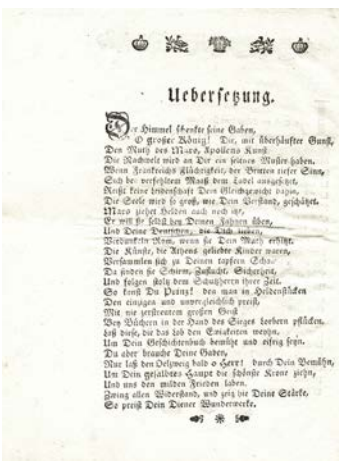 Uebersetzung.
Der Himmel schenkte seine Gaben,
O großer König! Dir, mit überhäufter Gunst,
Den Muth des Mars, Apollens Kunst
Die Nachwelt wird an Dir ein seltnes Muster haben.
Wenn Frankreichs Flüchtigkeit, der Britten tiefer Sinn,
Sich bey verfehltem Maaß dem Tadel ausgesetzet,
Reißt keine Leidenschaft Dein Gleichgewicht dahin,
Die Seele wird so groß, wie Dein Verstand, geschätzet.
Mars ziehet Helden auch noch itzt,
Er will sie selbst bey Deinen Fahnen üben,
Und Deine Deutschen, die Dich lieben,
Verdunkeln Rom, wenn sie Dein Muth erhitzt.
Die Künste, die Athens geliebte Kinder waren,
Versammlen sich zu Deinen tapfern
Da finden sie Schirm, Zuflucht, Sicherheit,
Und folgen stolz dem Schutzherrn ihrer Zeit.
So kannst Du den man in Heldenstücken
Den einzigen und unvergleichlich preist,
Mit nie zerstreutem großen Geist
Bey Büchern in der Hand des Sieges Lorbern pflücken.
Laß diese, die das Lob den Ewigkeiten weyhn,
Um Dein Geschichtenbuch bemüht und eifrig seyn.
Du aber brauche Deine Gaben,
Nur laß den Oelzweig bald o Herr! durch Dein Bemühn,
Um Dein gesalbtes Haupt die schönste Krone ziehn,
Und uns den milden Frieden laben.
Zwing allen Widerstand, und zeig wie Deine Stärke,
So preist Dein Diener Wunderwerke.